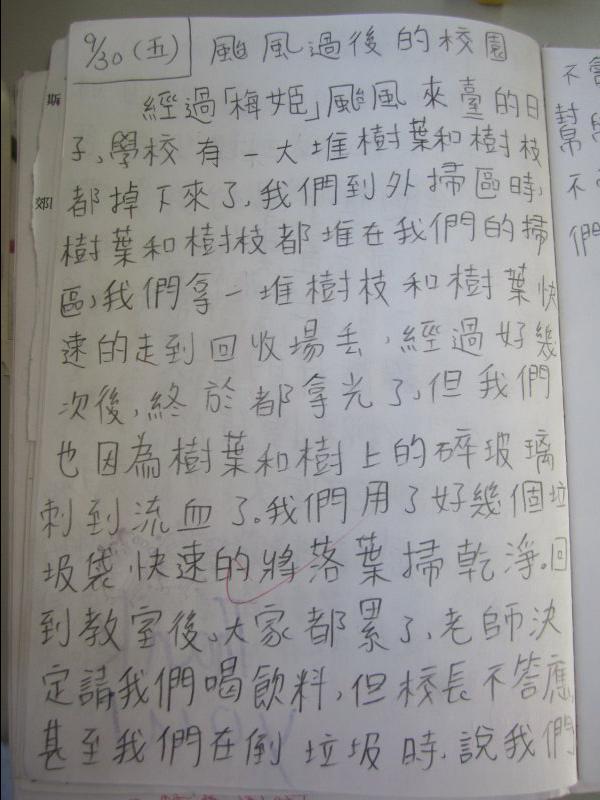 9/30(五) 颱風過後的校園
經過「梅姬」颱風來臺的日
子,學校有一大堆樹葉和樹枝
都掉下來了,我們到外掃區時,
樹葉和樹枝都堆在我們的掃
區,我們拿一堆樹枝和樹葉快
速的走到回收場丟,經過好幾
次後,終於都拿光了,但我們
也因為樹葉和樹上的碎玻璃
刺到流血了。我們用了好幾個垃
圾袋快速的將落葉掃乾淨。回
到教室後,大家都累了,老師決
定請我們喝飲料,但校長不答應
甚至我們在倒垃圾時,說我們
斯
郊
不
封
不
們